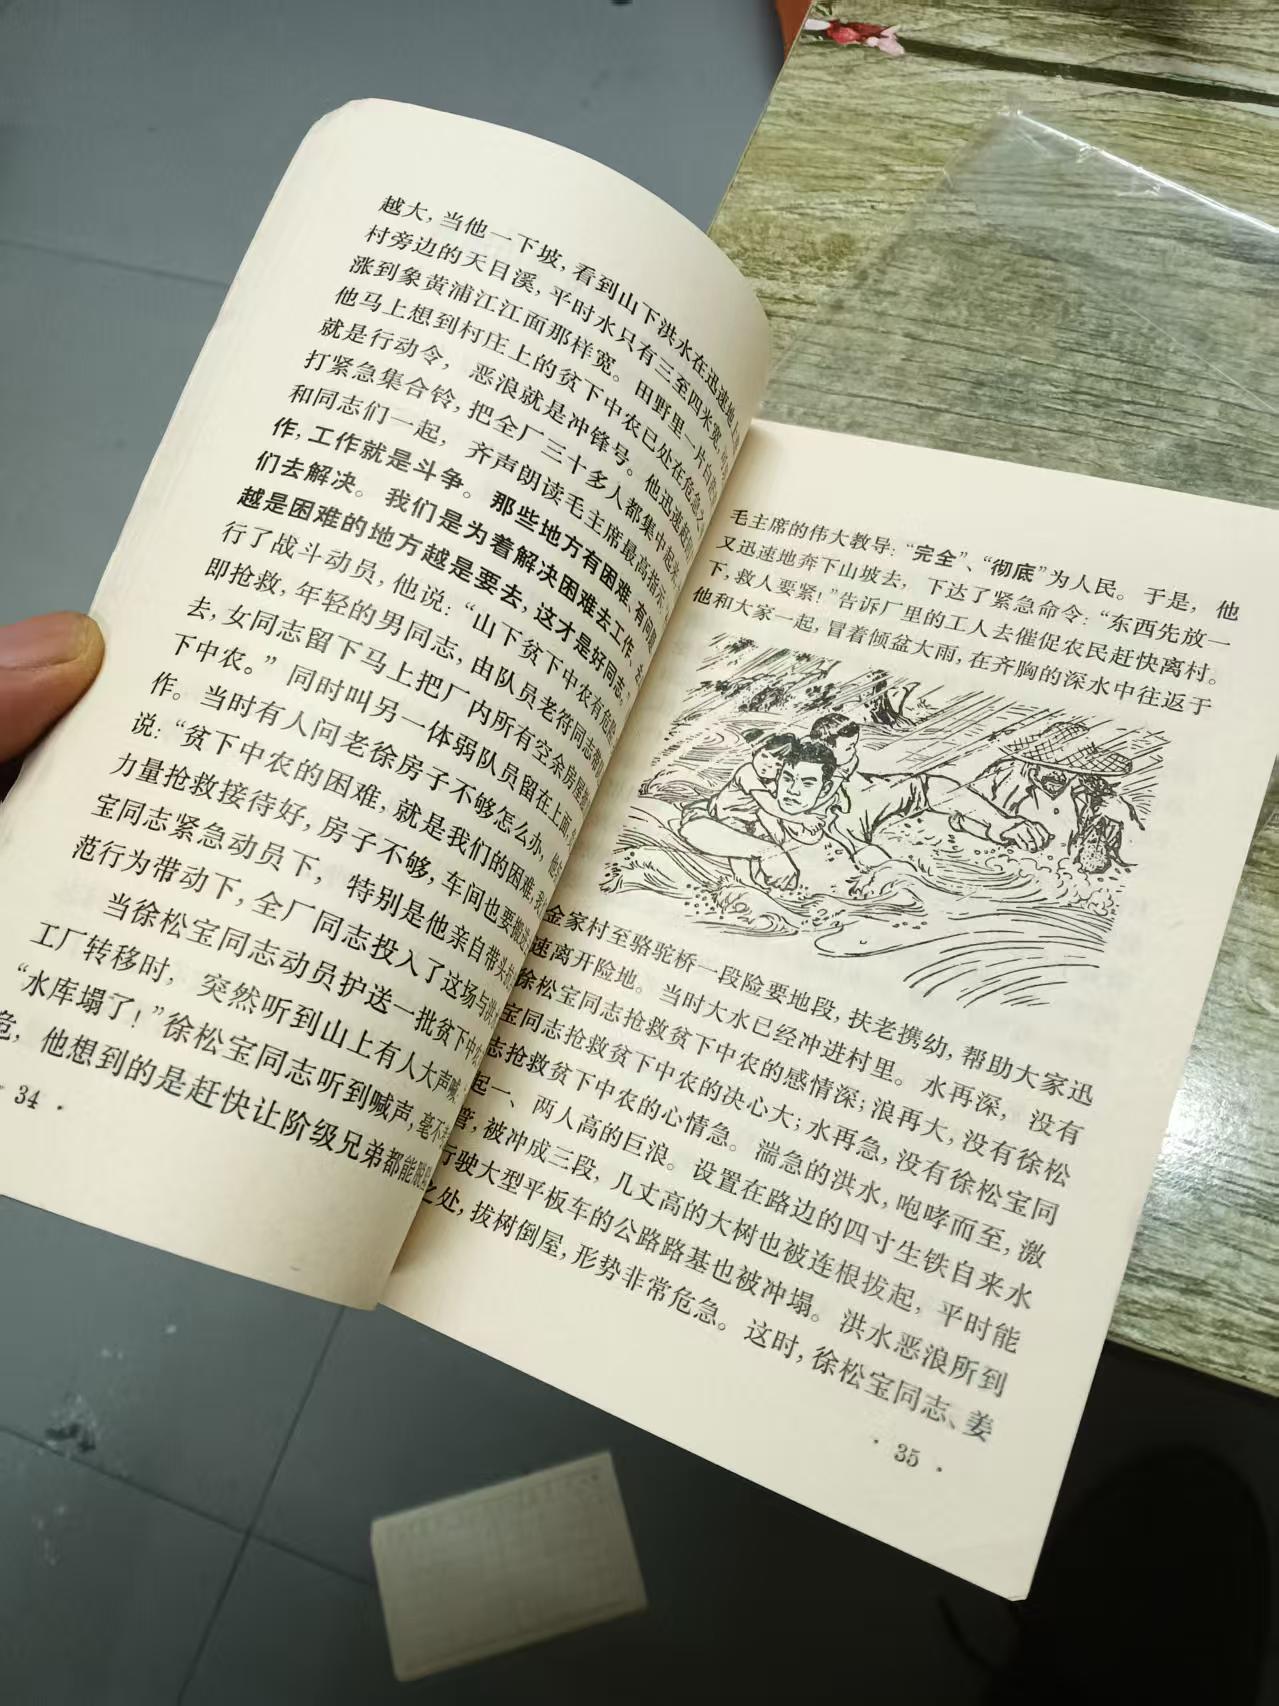 越大,当他一下坡,看到山下洪水在迅速地上
村旁边的天目溪,平时水只有三至四米宽,
涨到象黄浦江江面那样宽。田野里一片白
他马上想到村庄上的贫下中农已处在危急之
就是行动令,恶浪就是冲锋号。他迅速赶
打紧急集合铃,把全厂三十多人都集中起来,
和同志们一起,齐声朗读毛主席最高指示:
作,工作就是斗争。那些地方有困难、有问题
们去解决。我们是为着解决困难去工作、去
越是困难的地方越是要去,这才是好同志。”
行了战斗动员,他说:“山下贫下中农有危险
即抢救,年轻的男同志,由队员老符同志带
去,女同志留下马上把厂内所有空余房屋
下中农。”同时叫另一体弱队员留在上面,
作。当时有人问老徐房子不够怎么办,他
说:“贫下中农的困难,就是我们的困难,
力量抢救接待好,房子不够,车间也要搬
宝同志紧急动员下,特别是他亲自带头
范行为带动下,全厂同志投入了这场与洪
当徐松宝同志动员护送一批贫下中农
工厂转移时,突然听到山上有人大声喊:
“水库塌了!”徐松宝同志听到喊声,毫不
危,他想到的是赶快让阶级兄弟都能脱
· 34 ·
毛主席的伟大教导:“完全”、“彻底”为人民。于是,他
又迅速地奔下山坡去,下达了紧急命令:“东西先放一
下,救人要紧!”告诉厂里的工人去催促农民赶快离村。
他和大家一起,冒着倾盆大雨,在齐胸的深水中往返于
金家村至骆驼桥一段险要地段,扶老携幼,帮助大家迅
速离开险地。当时大水已经冲进村里。水再深,没有
徐松宝同志抢救贫下中农的感情深;浪再大,没有徐松
宝同志抢救贫下中农的决心大;水再急,没有徐松宝同
志抢救贫下中农的心情急。湍急的洪水,咆哮而至,激
起一、两人高的巨浪。设置在路边的四寸生铁自来水
管,被冲成三段,几丈高的大树也被连根拔起,平时能
行驶大型平板车的公路路基也被冲塌。洪水恶浪所到
之处,拔树倒屋,形势非常危急。这时,徐松宝同志、姜
· 35 ·